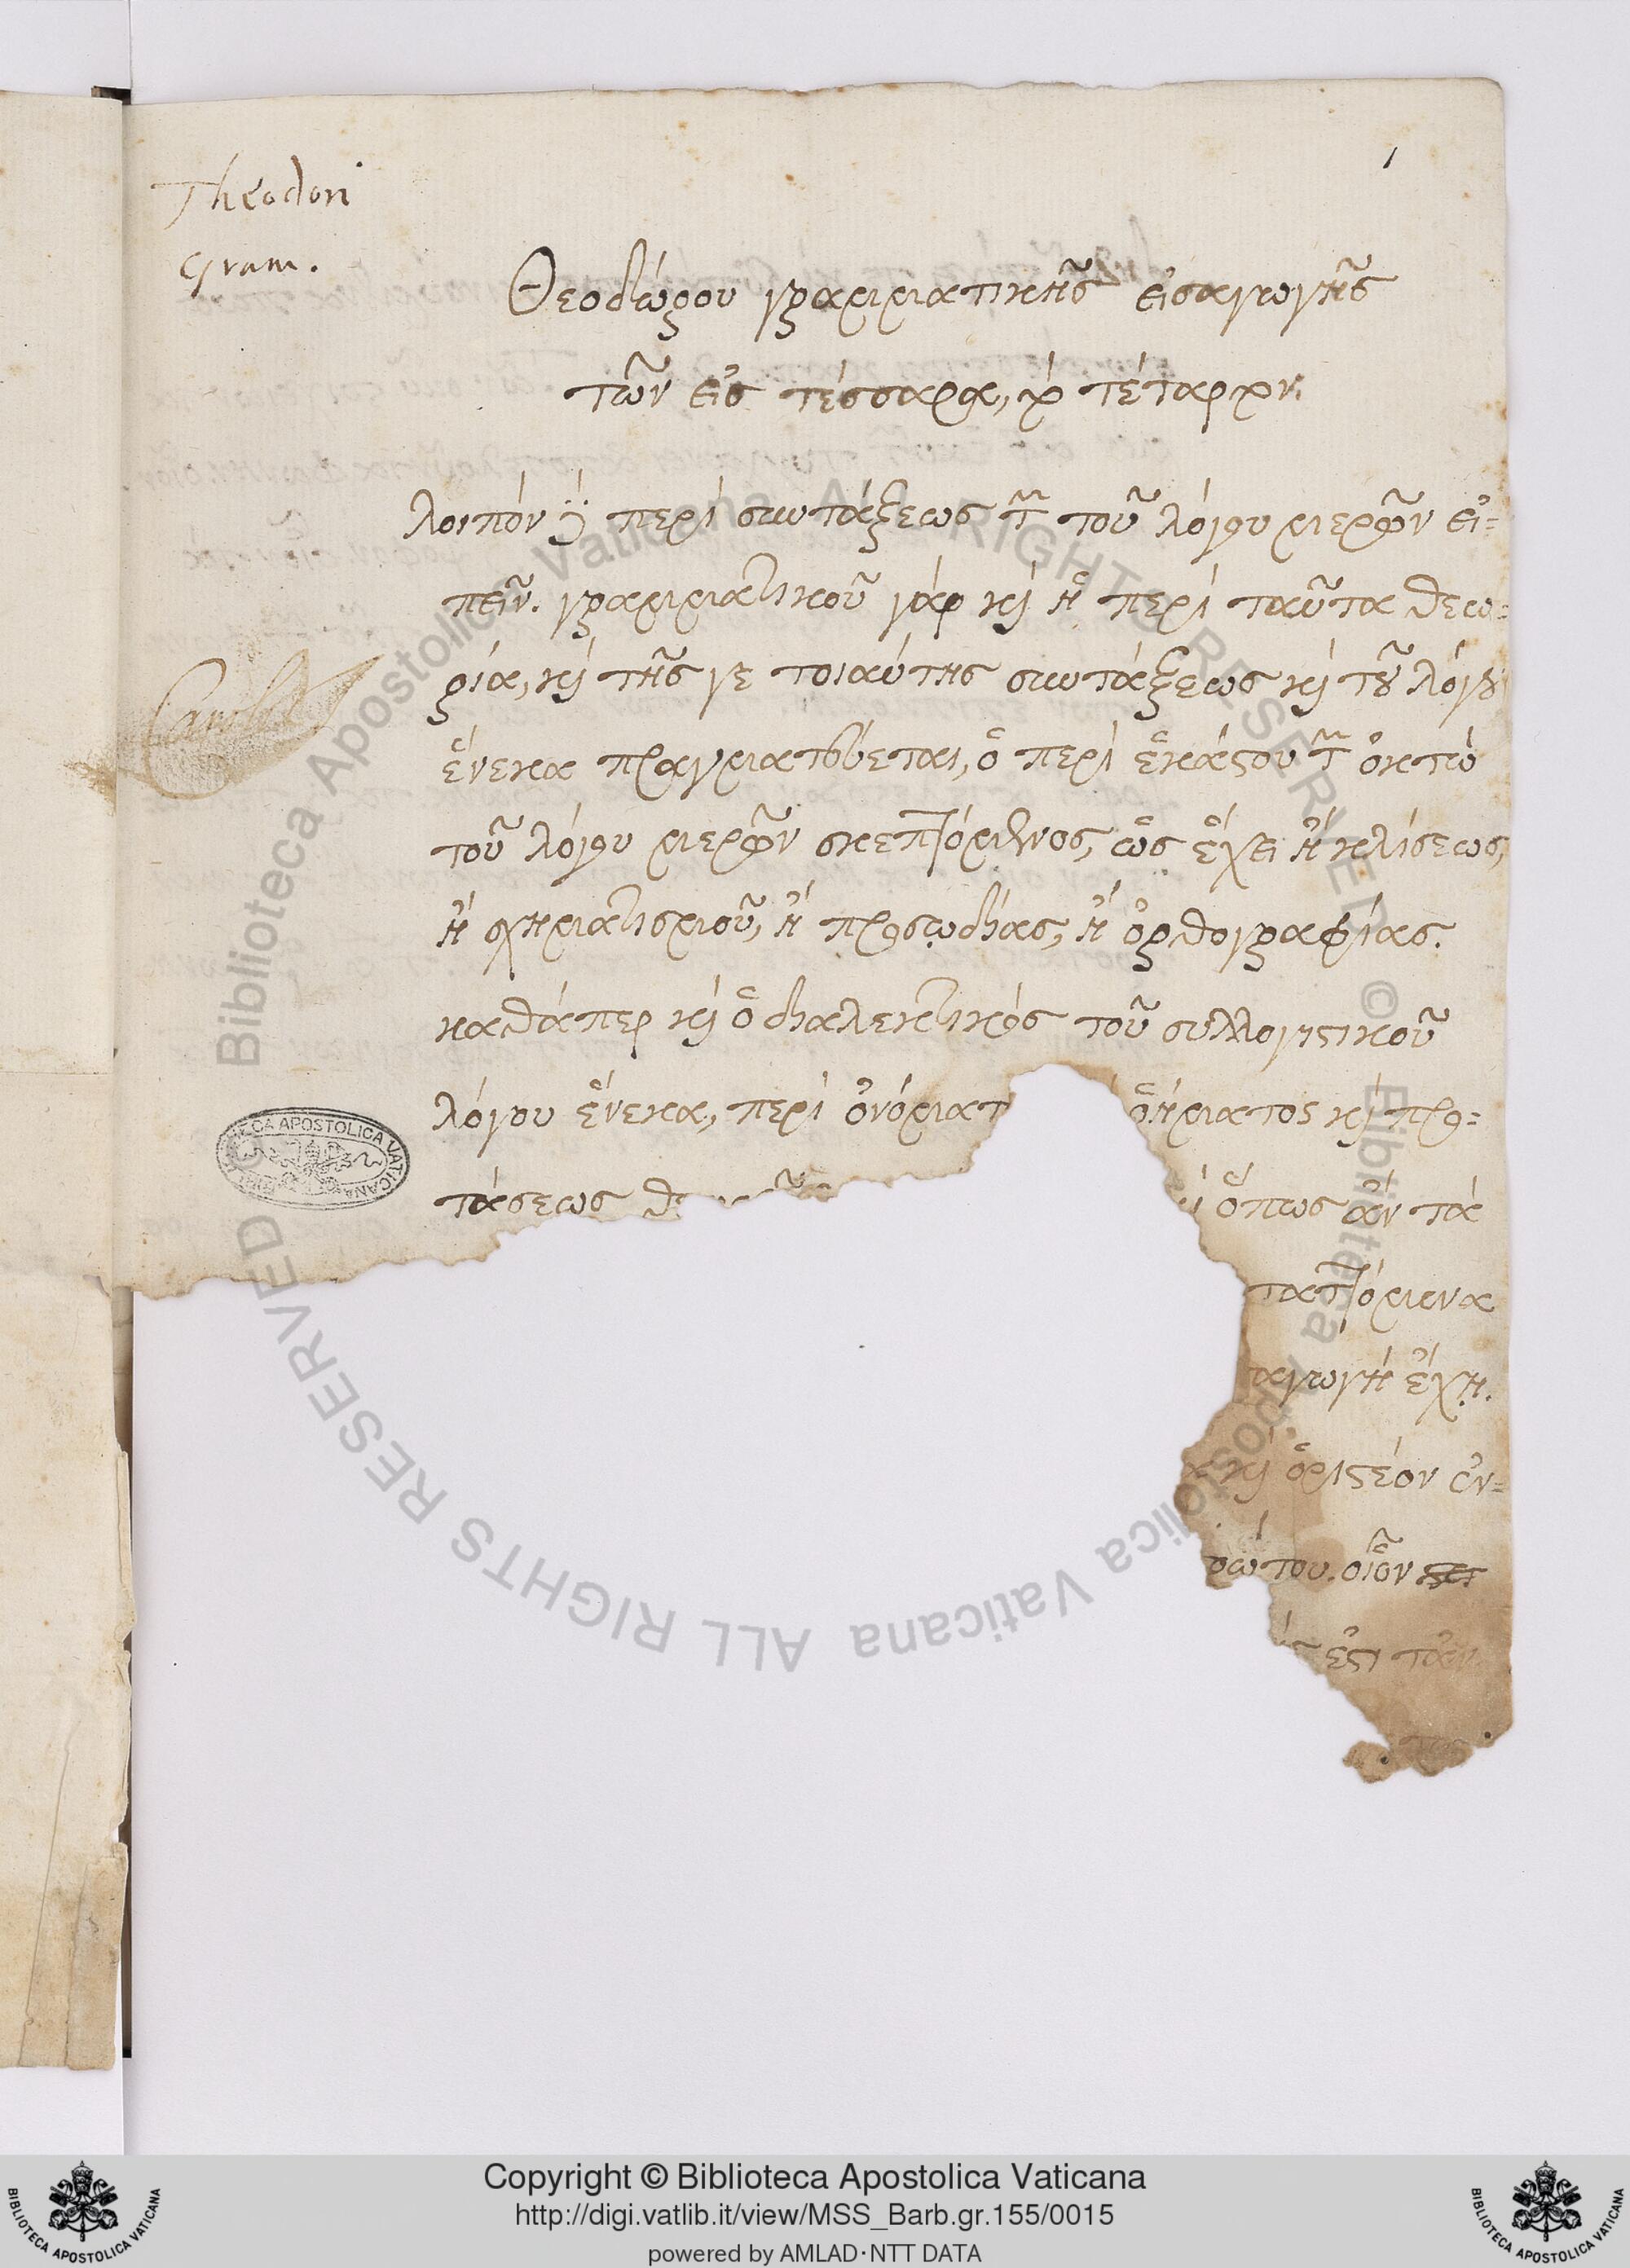 1
Theodori
Gram.
Θεοδώρου γραμματικῆς εἰσαγωγῆς
τῶν εἰς τέσσαρα, τὸ τέταρτον.
λοιπὸν δὲ περὶ συντάξεως τῶν τοῦ λόγου μερῶν εἰ-
πεῖν. γραμματικοῦ γὰρ καὶ ἡ περὶ ταῦτα θεω-
ρία, καὶ τῆς γε τοιαύτης συντάξεως καὶ τοῦ λόγου
ἕνεκα πραγματεύεται, ὁ περὶ ἑκάστου τῶν ὀκτὼ
τοῦ λόγου μερῶν σκεπτόμενος, ὡς ἔχει ἢ κλίσεως,
ἢ σχηματισμοῦ, ἢ προσῳδίας, ἢ ὀρθογραφίας.
καθάπερ καὶ ὁ διαλεκτικὸς τοῦ συλλογιστικοῦ
λόγου ἕνεκα, περὶ ὀνόματ ῥήματος καὶ προ-
τάσεως ὅπως ἂν τὰ
ταττόμενα
αγωγὴ ἔχῃ.
καὶ ὁριστέον ἐν-
ώτου. οἷον
ἐστὶ
BIBLIOTECA APOSTOLICA VATICANA
Biblioteca Apostolica Vaticana ALL RIGHTS RESERVED © Biblioteca Apostolica Vaticana ALL RIGHTS RESERVED ©
Copyright © Biblioteca Apostolica Vaticana
http://digi.vatlib.it/view/MSS_Barb.gr.155/0015
powered by AMLAD·NTT DATA
BIBLIOTECA APOSTOLICA VATICANA
BIBLIOTECA APOSTOLICA VATICANA